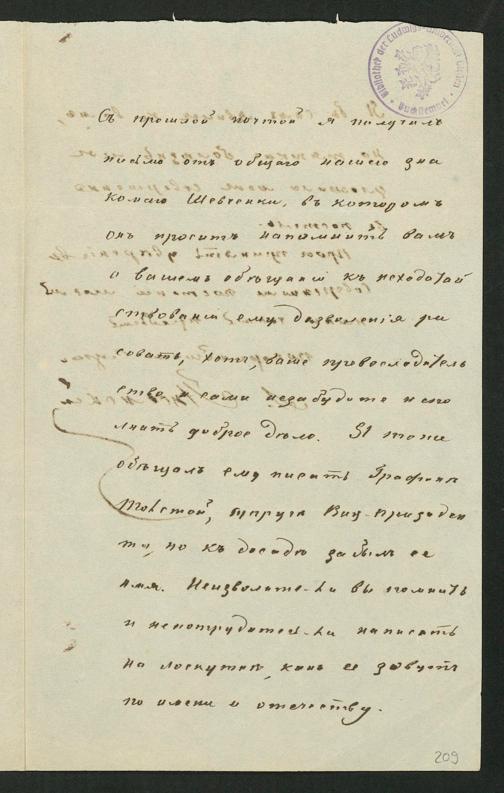 Bibliothek der Ludwigs-Universität Giessen
Съ прошлой почтой я получилъ
письмо отъ общаго нашего зна
комаго Шевченки, въ которомъ
онъ проситъ напомнить вамъ
о вашемъ обѣщаніи къ исходатай
ствованію ему дозволенія ри
совать, хотя, ваше превосходитель
ство и сами незабудите испо
лнить доброе дѣло. Я тоже
обѣщалъ ему писать Графинѣ
Толстой, супруга Виц-Призиден
та, но къ досадѣ забылъ ее
имя. Неизволите-ли вы помнить
и непотрудитесь-ли написать
на лоскуткѣ, какъ ее зовутъ
по имени и отечеству.
209